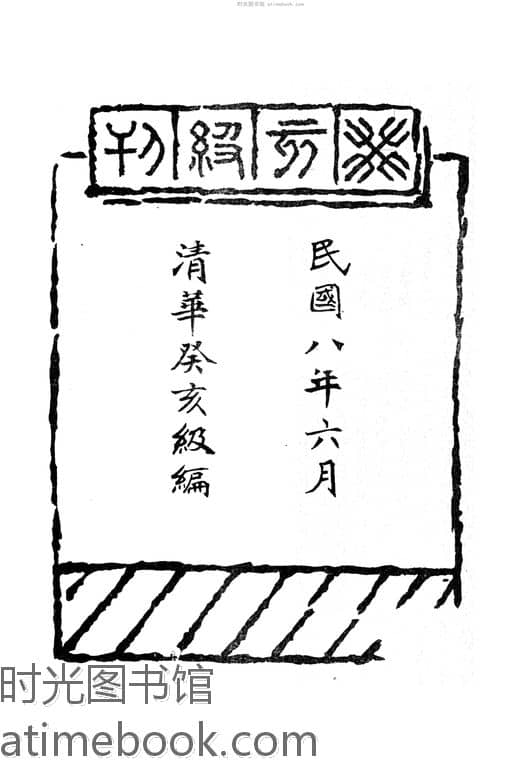 时光图书馆 atimebook.com
癸亥級刊
民國八年六月
清華癸亥級編
时光图书馆
atimebook.com